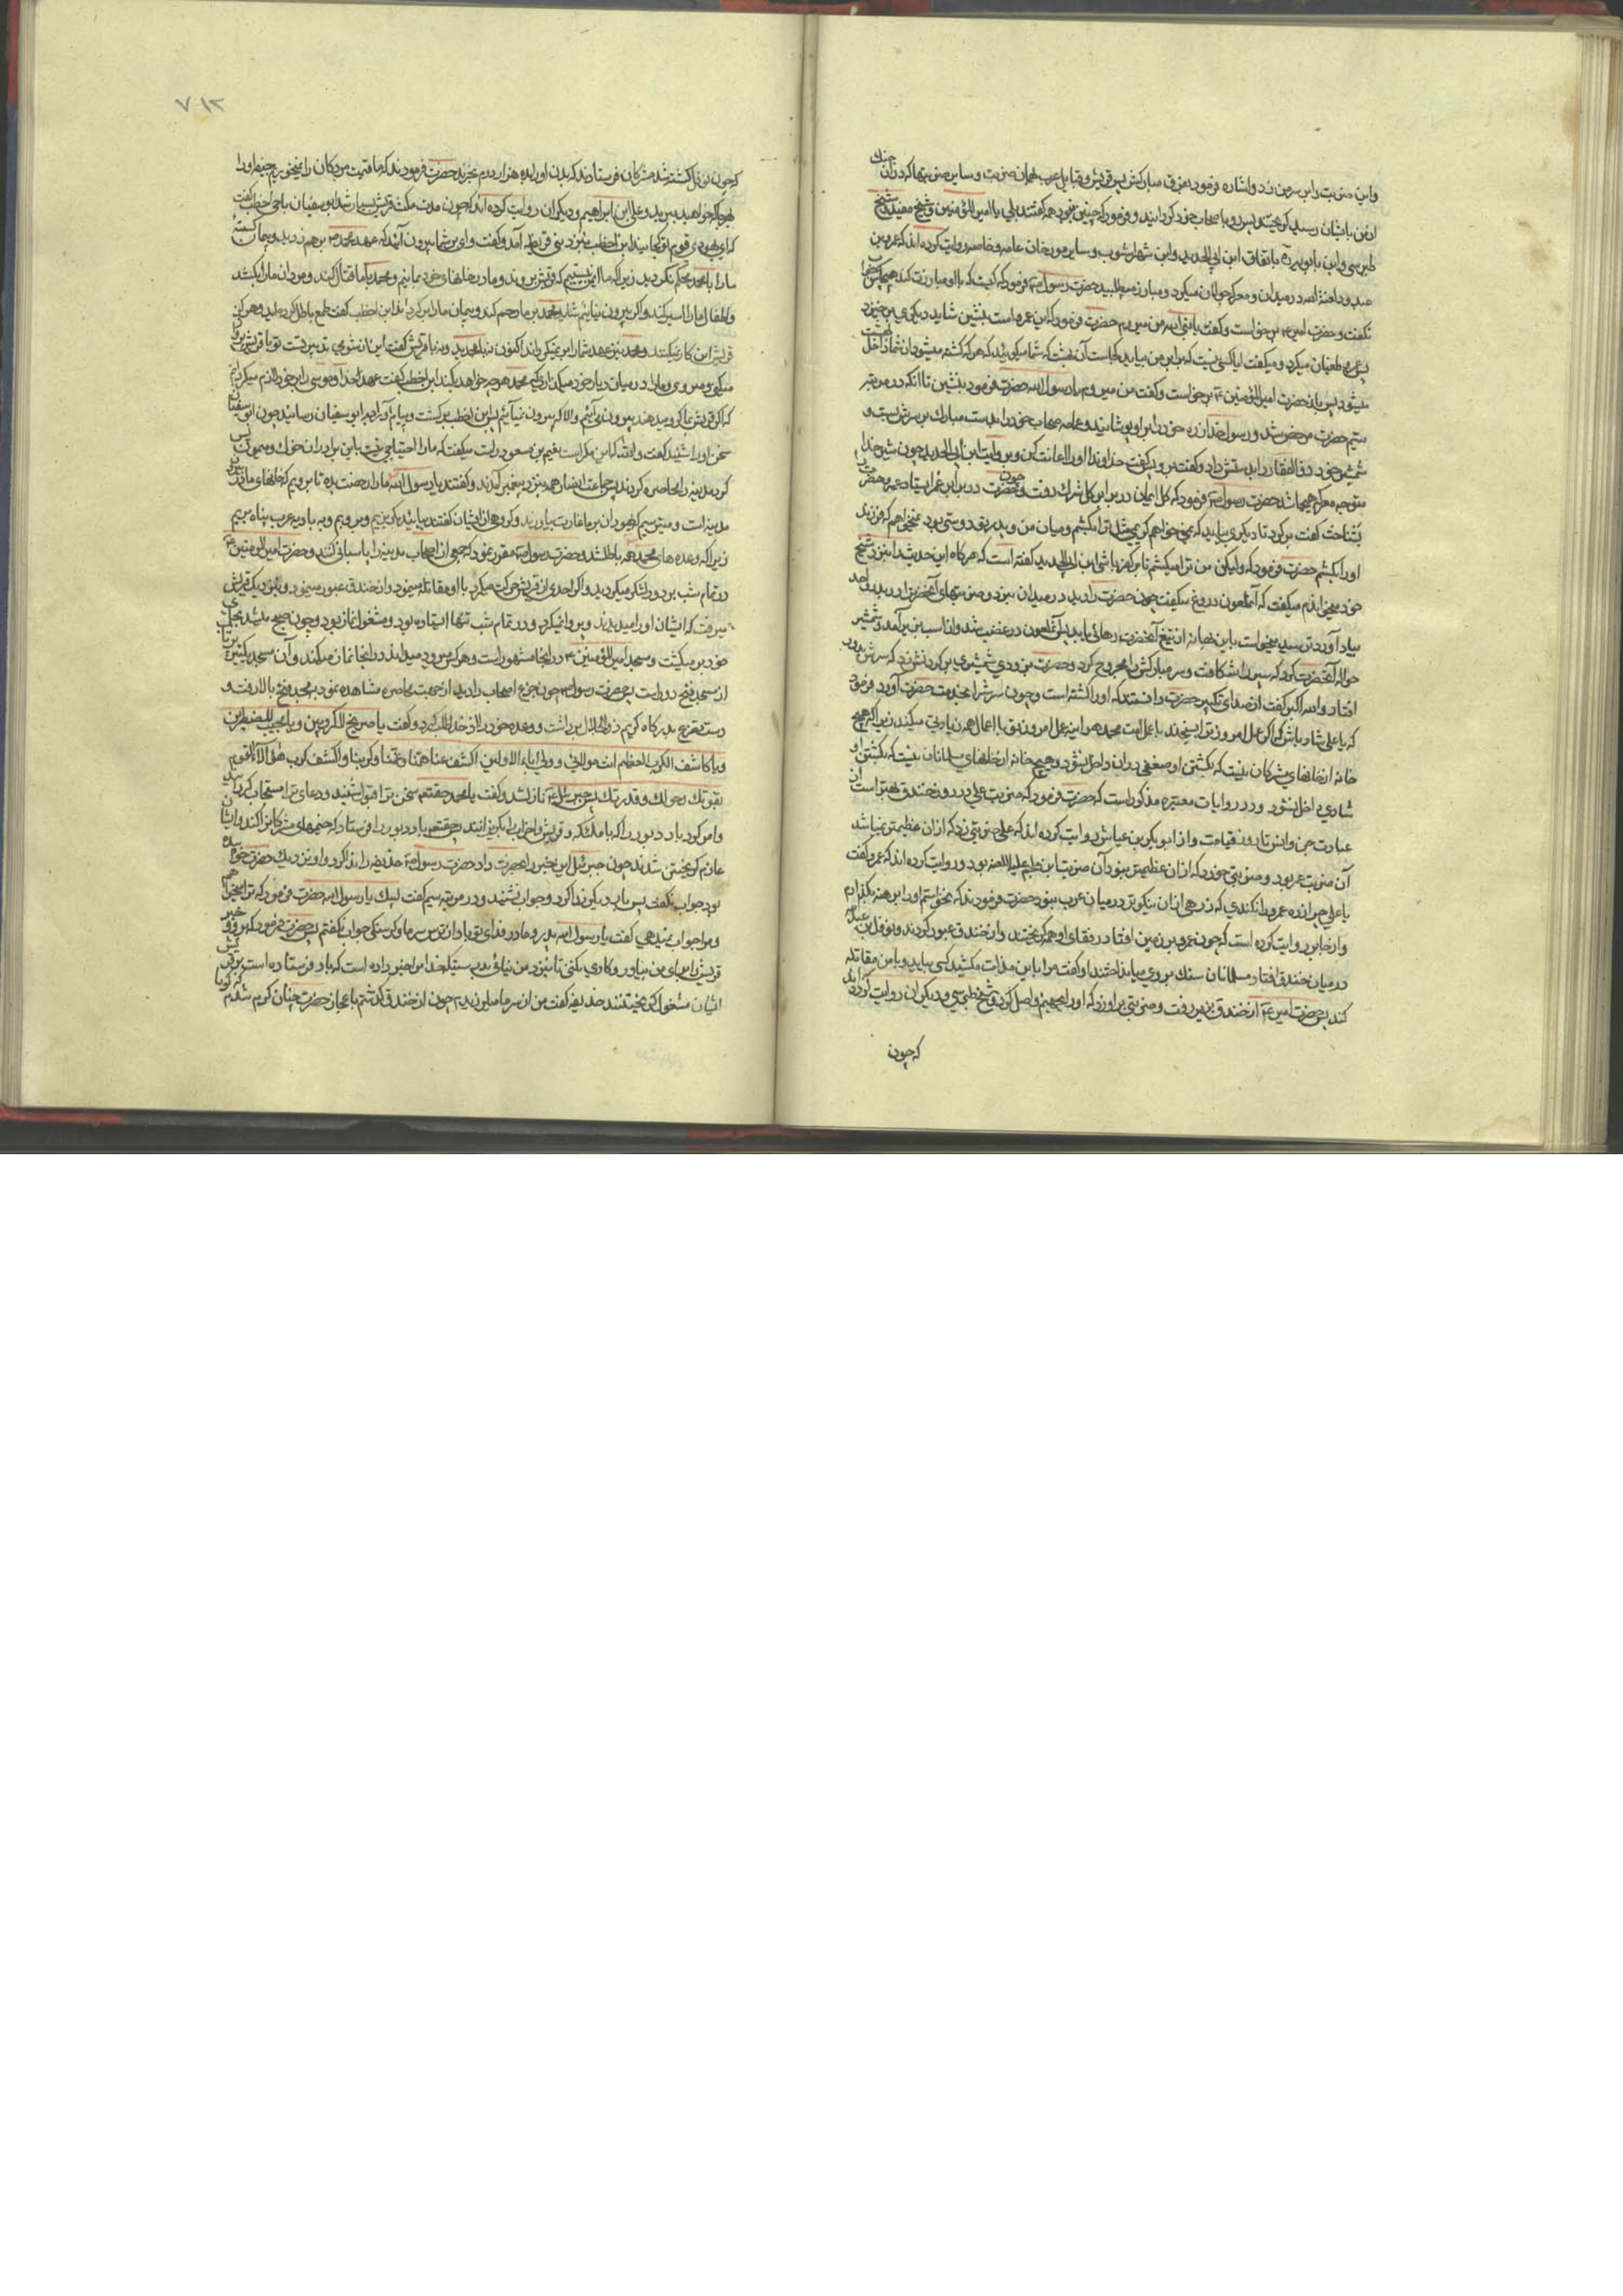 و این ضربت را بر سر من زد و اشاره فرمود بفرق مبارکش پس قریش و قبایل عرب همان ضربت و سایر ضربتها که در آن جنک
از من بایشان رسید کریختند پس رو باصحاب خود کردانید و فرمود که چنین نبود همه کفتند بلی یا امیر المؤمنین و شیخ مفید و شیخ
طبرسی و ابن بابویه باتفاق ابن ابی الحدید و ابن شهر اشوب و سایر مورخان عامه و خاصه روایت کرده اند که عمرو بن
عبدود لعنة الله در میدان و معرکه جولان میکرد و مبارز میطلبید حضرت رسول فرمود که کیست که با او مبارزت کند هیچکس جواب
نکفت و حضرت امیر برخواست و کفت یا نبی الله من میروم حضرت فرمود که این عمرو است بنشین شاید دیکری برخیزد
پس عمرو طغیان میکرد و میکفت ایا کسی نیست که برابر من بیاید کجاست آن بهشت که شما میکوئید که هر که کشته میشود از شما داخل بهشت
میشود پس باز حضرت امیر المؤمنین برخواست و کفت من میروم یا رسول الله حضرت فرمود بنشین تا آنکه در مرتبه
سیم حضرت مرخص شد و رسول خدا زره خود را بر او پوشانید و عمامه سحاب خود را بدست مبارک بر سرش بست و
شمشیر خود ذوالفقار را بدستش داد و کفت برو پس کفت خداوندا او را اعانت کن و بروایت ابن ابی الحدید چون شیر خدا
متوجه معرکه هیجا شد حضرت رسول فرمود که کل ایمان در برابر کل شرک رفت و چون حضرت در برابر عمرو ایستاد عمرو حضرت را
شناخت کفت برکرد تا دیکری بیاید که نمیخواهم کریمی مثل ترا بکشم و میان من و پدر تو دوستی بود نمیخواهم که فرزند
او را بکشم حضرت فرمود که ولیکن من ترا میکشم تا بر کفر باشی ابن ابی الحدید کفته است که هر کاه این حدیث را نزد شیخ
خود میخواندم میکفت که آن ملعون دروغ میکفت چون حضرت را دید در میدان نبرد و ضربتهای آنحضرت را در بدر و احد
بیاد آورد ترسید میخواست باین بهانه از تیغ آنحضرت رهائی یابد پس آن ملعون در غضب شد و از اسب بزیر آمد و شمشیر
حواله آنحضرت کرد که سپر را شکافت و سر مبارکش را مجروح کرد و حضرت بزودی شمشیری بر کردنش زد که سرش دور
افتاد و الله اکبر کفت از صدای تکبیر حضرت دانستند که او را کشته است و چون سرش را بخدمت حضرت آورد فرمود
که یا علی شاد باش که اکر عمل امروز ترا بسنجند با عمل امت محمد هر اینه عمل امروز تو با اعمال همه زیادتی میکند زیرا که هیچ
خانه از خانهای مشرکان نیست که بکشتن او ضعفی در آن داخل نشود و هیچ خانه از خانهای مسلمانان نیست که بکشتن او
شادی داخل نشود و در روایات معتبره مذکور است که حضرت فرمود که ضربت علی در روز خندق بهتر است از
عبادت جن و انس تا روز قیامت و از ابو بکر بن عیاش روایت کرده اند که علی ضربتی زد که از ان عظیمتر نمیباشد
آن ضربت عمرو بود و ضربتی خورد که از ان عظیمتر نبود آن ضربت ابن ملجم علیه اللعنه بود و روایت کرده اند که عمر کفت
یا علی چرا زره عمرو را نکندی که زرهی از ان نیکوتر در میان عرب نبود حضرت فرمودند که نخواستم او را برهنه بکذارم
و از جابر روایت کرده است که چون عمرو بر زمین افتاد رفقای او همه کریختند و از خندق عبور کردند و نوفل بن عبدالله
در میان خندق افتاد مسلمانان سنک بر وی میانداختند او کفت مرا باین مذلت مکشید کسی بیاید و با من مقاتله
کند پس حضرت امیر از خندق بزیر رفت و ضربتی بر او زد که او را بجهنم واصل کرد و شیخ طبرسی و دیکران روایت کرده اند
که چون
٧١٢
که چون نوفل کشته شد مشرکان فرستادند که بدن او را بده هزار درم بخرند حضرت فرمودند که ما قیمت مردکان را نمیخوریم جیفه او را
بهر جا که خواهید ببرید و علی ابن ابراهیم و دیکران روایت کرده اند که چون مدت مکث قریش بسیار شد ابو سفیان با حی اخطب کفت
که ای یهودی قوم تو کجایند ابن اخطب بنزد بنی قریظه آمد و کفت وای بر شما بیرون آئید که عهد محمد بر هم زدید و پیمان کسسته
ما را با محمد محکم نکردید زیرا که ما ایمن نیستیم که قریش بروند و ما در خانهای خود بمانیم و محمد با ما قتال کند و مردان ما را بکشد
و اطفال ما را اسیر کند و اکر بیرون نیائیم شاید محمد بر ما رحم کند و پیمان ما را برکرداند ابن اخطب کفت طمع باطل کرده اید و هرکز
قریش این کار نمیکنند و محمد نیز عهد شما را بر نمیکرداند اکنون نه با محمدید و نه با قریش کفت این از شومی تدبیر تست تو با قریش پرواز
میکنی و میروی و ما را در میان دیار خود میکذاری که محمد هر چه خواهد بکند ابن اخطب کفت عهد خدا و موسی را بر خود لازم میکردانم
که اکر قریش ما کرو بدهند بیرون می آئیم والا که بیرون نمیآئیم پس ابن اخطب برکشت و پیام آورد به ابو سفیان رسانید چون ابو سفیان
سخن او را شنید کفت والله که این مکر است نعیم بن مسعود راست میکفت که ما را احتیاجی نیست باین برادران خوک و میمون پس
کرد مدینه را محاصره کردند پس جماعت انصار همه بنزد پیغمبر آمدند و کفتند یا رسول الله ما را رخصت بده تا برویم که خانهای ما نزدیک
مدینه است و میترسیم که یهودان بر ما غارت بیاورند و کروهی از ایشان کفتند بیائید بکریزیم و برویم و به بادیه عرب پناه بریم
زیرا که وعده های محمد همه باطل شد و حضرت رسول مقرر نمود که جمعی از اصحاب مدینه را پاسبانی کنند و حضرت امیر المؤمنین
در تمام شب بر دور لشکر میکردید و اکر احدی از قریش حرکت میکرد با او مقاتله مینمود و از خندق عبور مینمود و بنزدیک قریش
میرفت که ایشان او را میدیدند و پروا نمیکرد و در تمام شب تنها ایستاده بود و مشغول نماز بود و چون صبح میشد بجای
خود بر میکشت و مسجد امیر المؤمنین در انجا مشهور است و هر کس میرود میداند در انجا نماز میکند و آن مسجد بیک تیر پرتاب
از مسجد فتح دور است پس حضرت رسول چون جزع اصحاب را دید از صعوبت محاصره مشاهده نمود بمسجد فتح بالا رفت و
دست تضرع بدرکاه کریم ذوالجلال برداشت و وعده خود را از خدا طلب کرد و کفت یا صریخ المکروبین و یا مجیب المضطرین
و یا کاشف الکرب العظیم انت مولائی و ولی اباءی الاولین اکشف عنا همنا و غمنا و کربنا و اکشف کرب هؤلاء القوم
بقوتک و حولک و قدرتک پس جبرئیل نازل شد و کفت یا محمد حقتعالی سخن ترا شنید و دعای ترا مستجاب کردانید
و امر کرد باد دبور را که با ملائکه قریش و احزاب را بکریزانند پس حقتعالی باد دبور را فرستاد که خیمهای مشرکان را کند و ایشان
عازم کریختن شدند چون جبرئیل این خبر را بحضرت داد حضرت رسول حذیفه را ندا کرد و او نزدیک حضرت خوابیده
بود جواب نکفت پس بار دیکر ندا کرد و جواب نشنید و در مرتبه سیم کفت لبیک یا رسول الله حضرت فرمود که ترا میخوانم
و مرا جواب نمیدهی کفت یا رسول الله پدر و مادرم فدای تو باد از ترس سرما و کرسنکی جواب نکفتم پس حضرت فرمود که برو و خبر
قریش را برای من بیاور و کاری نکنی تا بنزد من بیائی بدرستیکه خدا مرا خبر داده است که باد فرستاده است بر قریش
ایشان مشغول کریختنند حذیفه کفت من از سرما میلرزیدم چون از خندق کذشتم باعجاز حضرت چنان کرم شدم که کویا